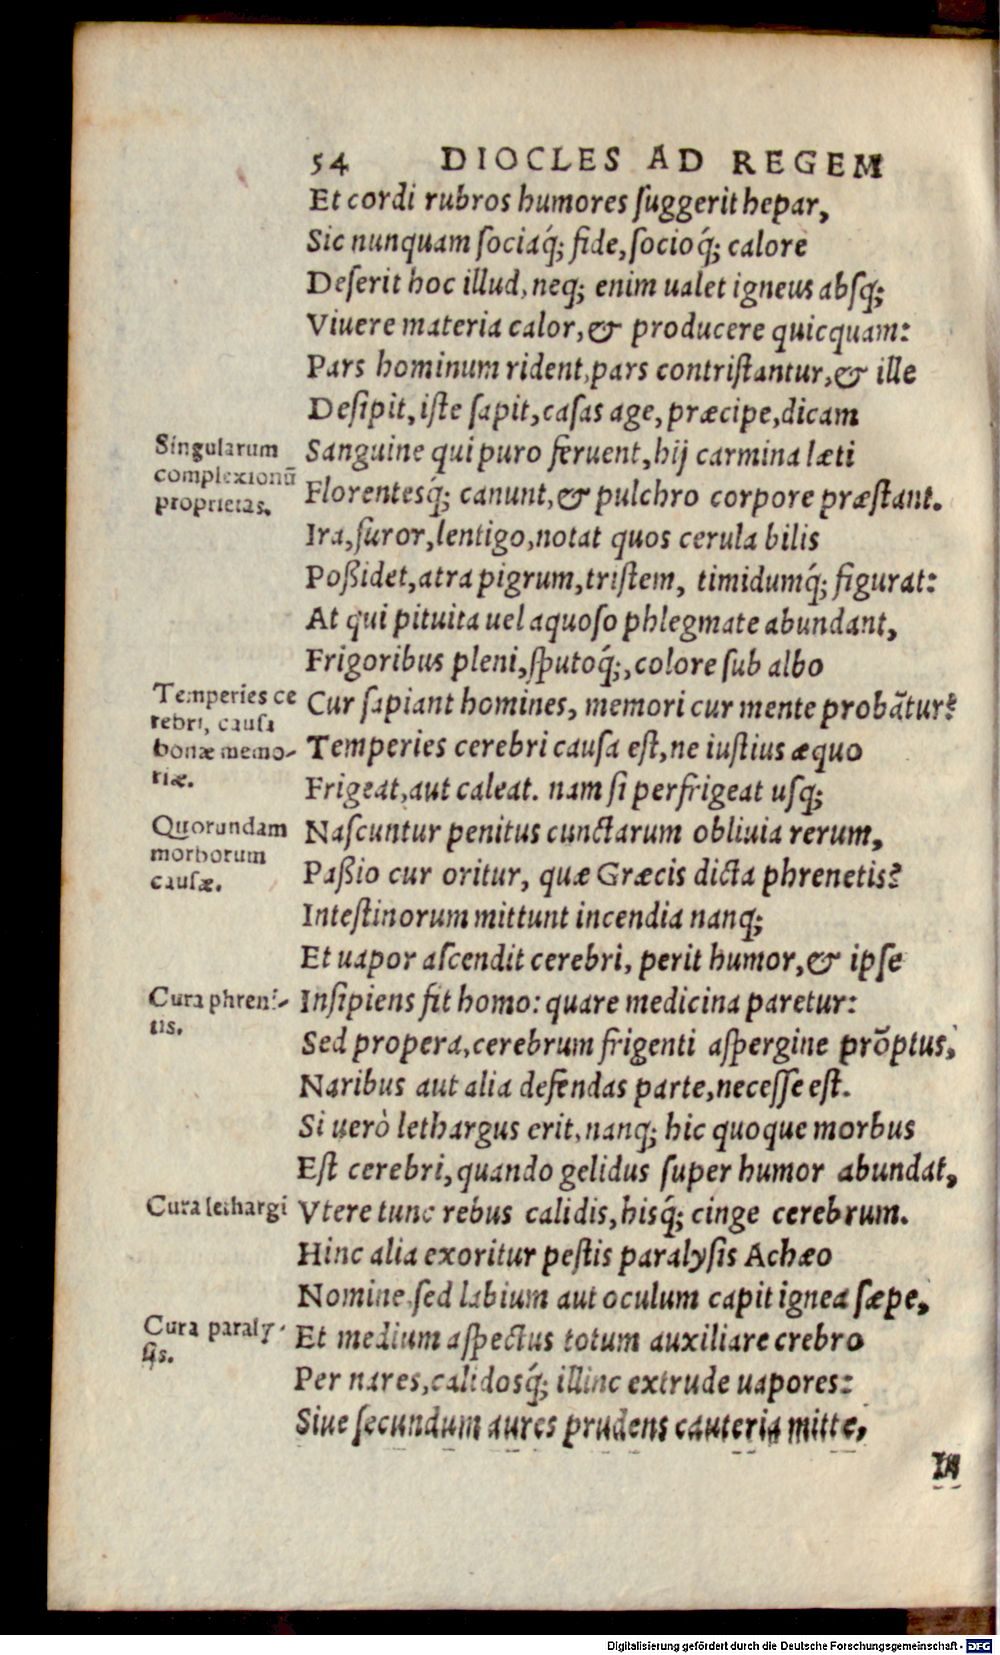 54 DIOCLES AD REGEM
Et cordi rubros humores ſuggerit hepar,
Sic nunquam ſociaq́; fide, ſocioq́; calore
Deſerit hoc illud, neq; enim ualet igneus abſq;
Viuere materia calor, & producere quicquam:
Pars hominum rident, pars contriſtantur, & ille
Deſipit, iſte ſapit, caſas age, præcipe, dicam
Singularum
complexionũ
proprietas.
Sanguine qui puro feruent, hij carmina læti
Florentesq́; canunt, & pulchro corpore præſtant.
Ira, furor, lentigo, notat quos cerula bilis
Poßidet, atra pigrum, triſtem, timidumq́; figurat:
At qui pituita uel aquoſo phlegmate abundant,
Frigoribus pleni, ſputoq́;, colore ſub albo
Temperies ce
rebri, cauſa
bonæ memo-
riæ.
Cur ſapiant homines, memori cur mente probãtur?
Temperies cerebri cauſa eſt, ne iuſtius æquo
Frigeat, aut caleat. nam ſi perfrigeat uſq;
Quorundam
morborum
cauſæ.
Naſcuntur penitus cunctarum obliuia rerum,
Paßio cur oritur, quæ Græcis dicta phrenetis?
Inteſtinorum mittunt incendia nanq;
Et uapor aſcendit cerebri, perit humor, & ipſe
Cura phreni-
tis.
Inſipiens fit homo: quare medicina paretur:
Sed propera, cerebrum frigenti aſpergine prõptus,
Naribus aut alia defendas parte, neceſſe eſt.
Si uerò lethargus erit, nanq; hic quoque morbus
Eſt cerebri, quando gelidus ſuper humor abundat,
Cura lethargi
Vtere tunc rebus calidis, hisq́; cinge cerebrum.
Hinc alia exoritur peſtis paralyſis Achæo
Nomine, ſed labium aut oculum capit ignea ſæpe,
Cura paraly-
ſis.
Et medium aſpectus totum auxiliare crebro
Per nares, calidosq́; illinc extrude uapores:
Siue ſecundum aures prudens cauteria mitte,
In
Digitalisierung gefördert durch die Deutsche Forschungsgemeinschaft - DFG